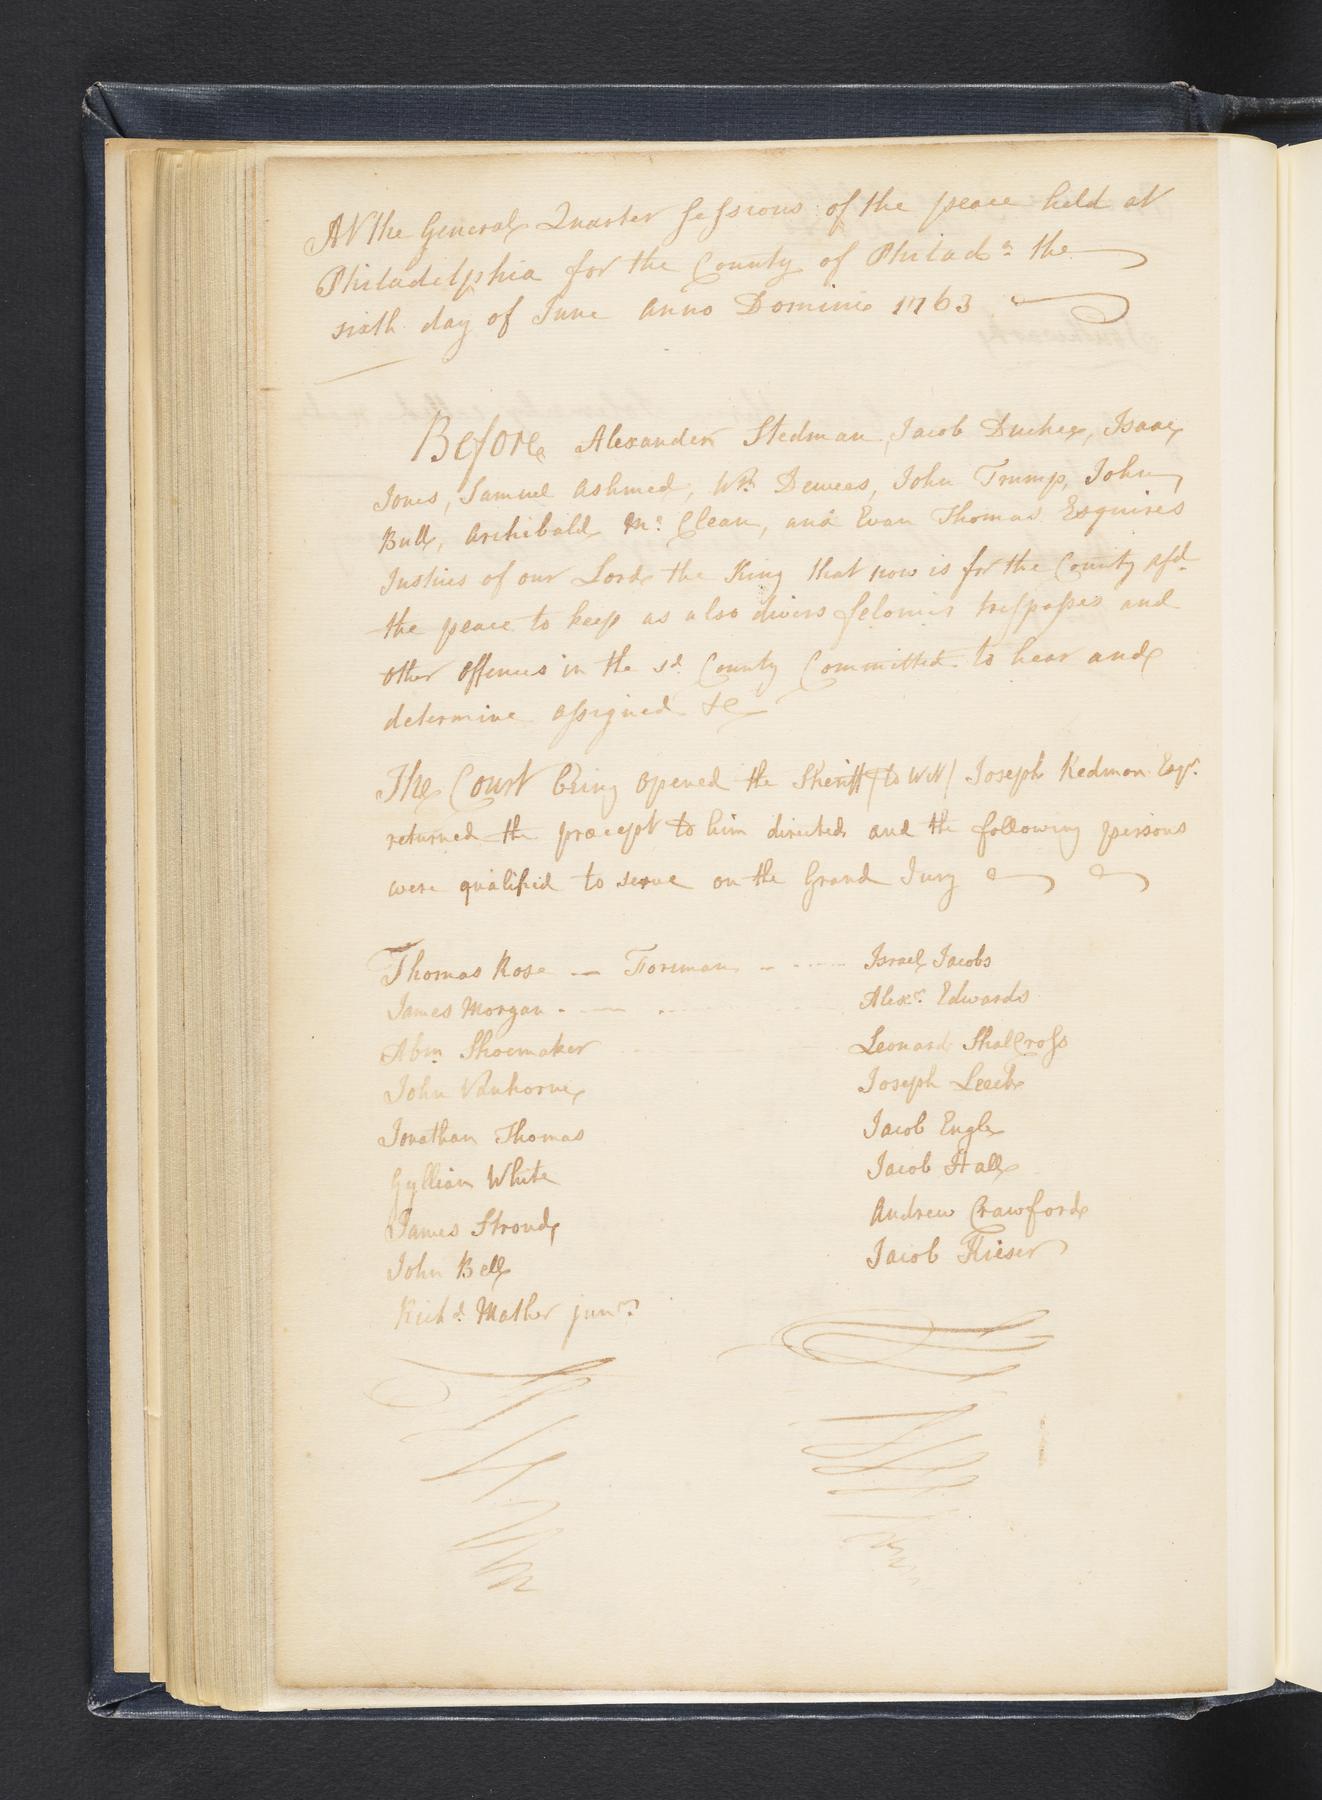 At the General Quarter Sessions of the peace held at
Philadelphia for the County of Philada the
sixth day of June Anno Domini 1763
Before Alexander Stedman, Jacob Duchee, Isaac
Jones, Samuel Ashmed, Wm Dewees, John Trump, John
Bull, Archibald Mc Clean, and Evan Thomas Esquires
Justies of our Lord the King that now is for the County afd
the peace to keep as also divers felonies trespasses and
other offences in the sd County Committed to hear and
determine assigned &c
The Court being opened the Sheriff (to Wit) Joseph Redman Esqr
returned the præcept to him directed and the following persons
were qualified to serve on the Grand Jury
Thomas Rose — Foreman - - - - - Israel Jacobs
James Morgan - — - - - Alexr Edwards
Abm Shoemaker Leonard ShalCross
John Vanhorne Joseph Leech
Jonathan Thomas Jacob Engle
Gyllian White Jacob Hall
James Stroud Andrew Crawford
John Bell Jacob
Richd Mather junr